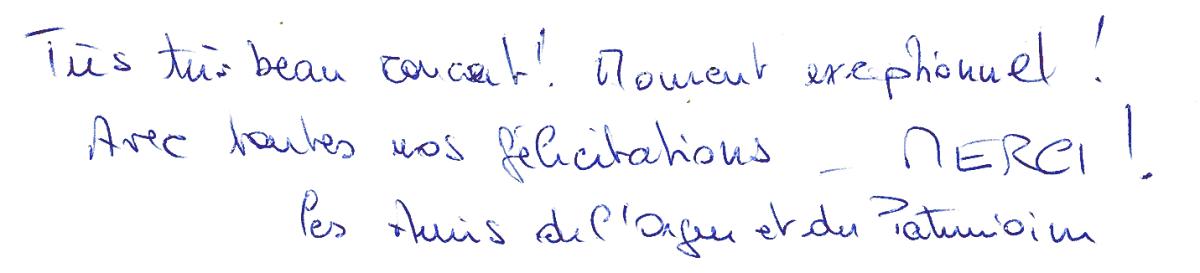 Très très beau concert ! Moment exceptionnel !
Avec toutes nos félicitations _ MERCI !
Les Amis de l'Orgue et du Patrimoine